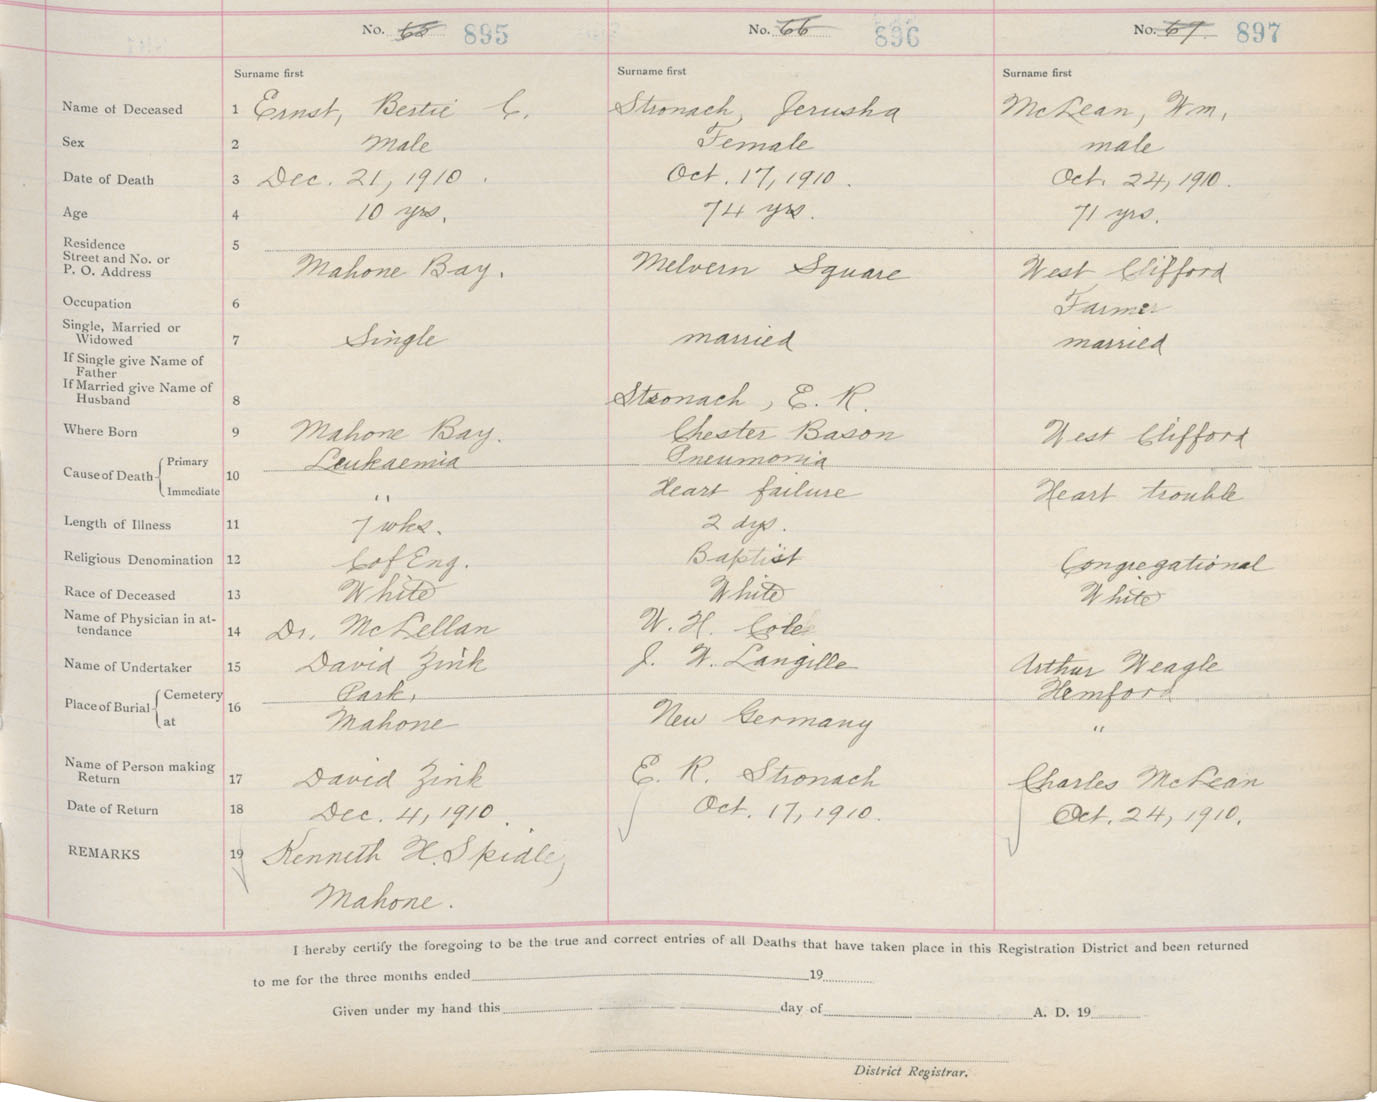 No. 65 895 No. 66 896 No. 67 897
Surname first Surname first Surname first
Name of Deceased 1 Ernst, Bertie C. Stronach, Jerusha McLean, Wm.
Sex 2 Male Female male
Date of Death 3 Dec. 21, 1910. Oct. 17, 1910. Oct. 24, 1910.
Age 4 10 yrs. 74 yrs. 71 yrs.
Residence 5
Street and No. or
P. O. Address Mahone Bay. Melvern Square West Clifford
Occupation 6 Farmer
Single, Married or
Widowed 7 Single married married
If Single give Name of
Father
If Married give Name of
Husband 8 Stronach, E. R.
Where Born 9 Mahone Bay. Chester Bason West Clifford
Cause of Death Primary 10 Leukaemia Pneumonia
Immediate " Heart failure Heart trouble
Length of Illness 11 7 wks. 2 dys.
Religious Denomination 12 C of Eng. Baptist Congregational
Race of Deceased 13 White White White
Name of Physician in at-
tendance 14 Dr. McLellan W. H. Cole
Name of Undertaker 15 David Zink J. W. Langille Arthur Weagle
Place of Burial Cemetery 16 Park, Hemford
at Mahone New Germany "
Name of Person making
Return 17 David Zink E. R. Stronach Charles McLean
Date of Return 18 Dec. 4, 1910. Oct. 17, 1910. Oct. 24, 1910.
REMARKS 19 Kenneth H. Spidle,
Mahone.
I hereby certify the foregoing to be the true and correct entries of all Deaths that have taken place in this Registration District and been returned
to me for the three months ended 19
Given under my hand this day of A. D. 19
District Registrar.